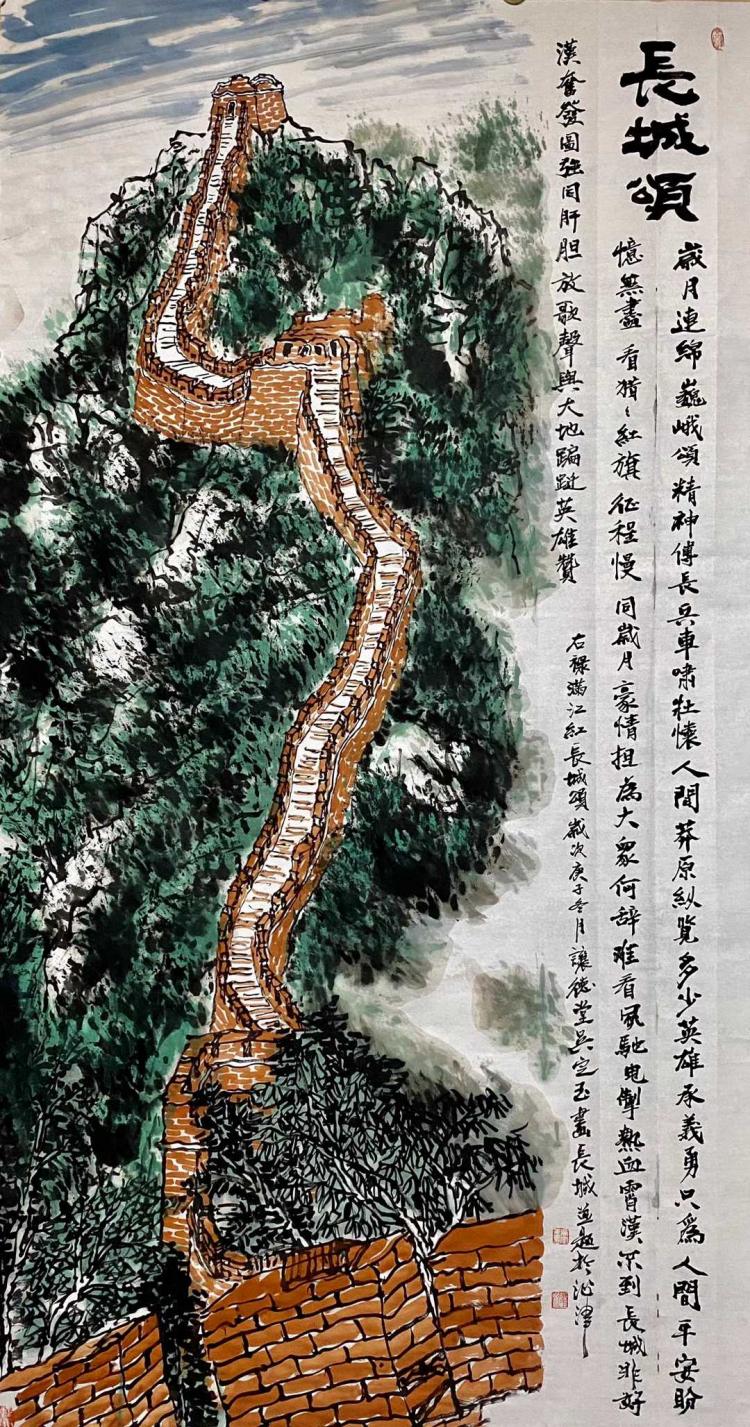 長城頌
歲月連綿巍峨頌精神傳長兵車嘯壯懷人間莽原纵覽多少英雄承義勇只為人間平安盼
憶無盡看猎〻紅旗征程慢同歲月豪情担為大眾何辞难看风馳电掣熱血霄漢不到長城非好
漢奮發圖強同肝胆放歌聲與大地蹁跹英雄贊
右禄满江紅長城頌歲次庚子冬月讓德堂吳定玉畫長城並題於津